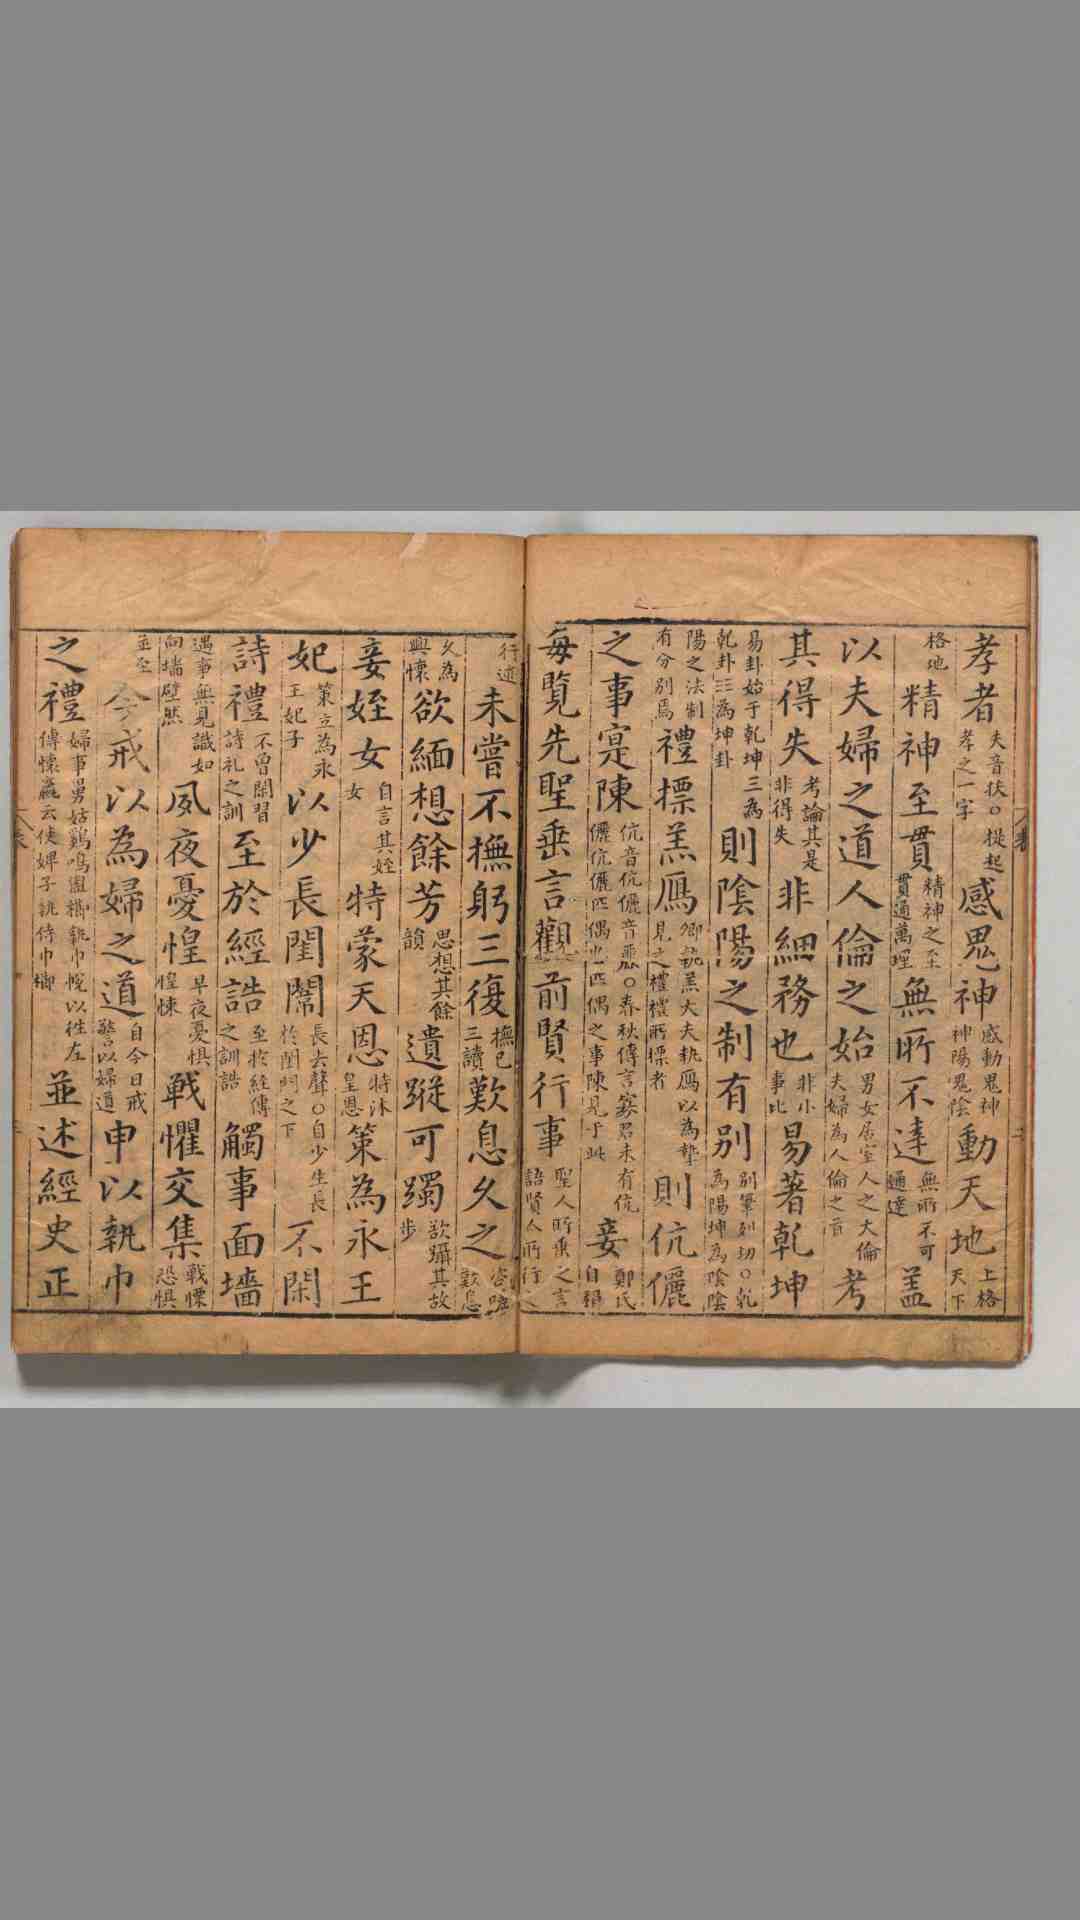 孝者夫音扶○提起孝之一字感鬼神感動鬼神神陽鬼陰動天地上格天下
格地精神至貫精神之至貫通萬理無所不達無所不可通達盖
以夫婦之道人倫之始男女居室人之大倫夫婦為人倫之首考
其得失考論其是非得失非細務也非小事比易著乾坤
易卦始于乾坤三為乾卦三為坤卦則陰陽之制有別別筆列切○乾為陽坤為陰陰
陽之法制有分別焉禮摽羔鴈卿執羔大夫執鴈以為摯見之禮禮所摽者則伉儷
之事寔陳伉音伉儷音麗○春秋傳言寡君未有伉儷伉儷匹偶也匹偶之事陳見于此妾鄭氏自稱
每覽先聖垂言觀前賢行事聖人所垂之言語賢人所行之
行迹未嘗不撫躬三復撫己三讀歎息久之咨嗟歎息
久為興懷欲緬想餘芳思想其餘韻遺蹤可躅欲躡其故步
妾姪女自言其姪女特蒙天恩特沐皇恩策為永王
妃策立為永王妃子以少長閨闈長去聲○自少生長於閨門之下不閑
詩禮不曾閑習詩礼之訓至於經誥至於經傳之訓誥觸事面墻
遇事無見識如向墻壁然夙夜憂惶早夜憂惧惶悚戰懼交集戰慄恐惧
並至今戒以為婦之道自今日戒警以婦道申以執巾
之禮婦事舅姑雞鳴盥櫛執巾帨以往左傳懷嬴云使婢子執侍巾櫛並述經史正